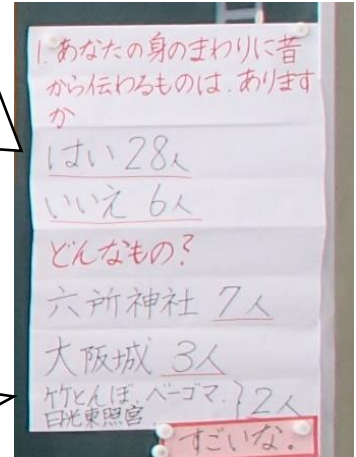 1. あなたの身のまわりに昔
から伝わるものは、あります
か
はい 28人
いいえ 6人
どんなもの?
六所神社 7人
大阪城 3人
竹とんぼ、ベーゴマ、}2人
日光東照宮
すごいな。